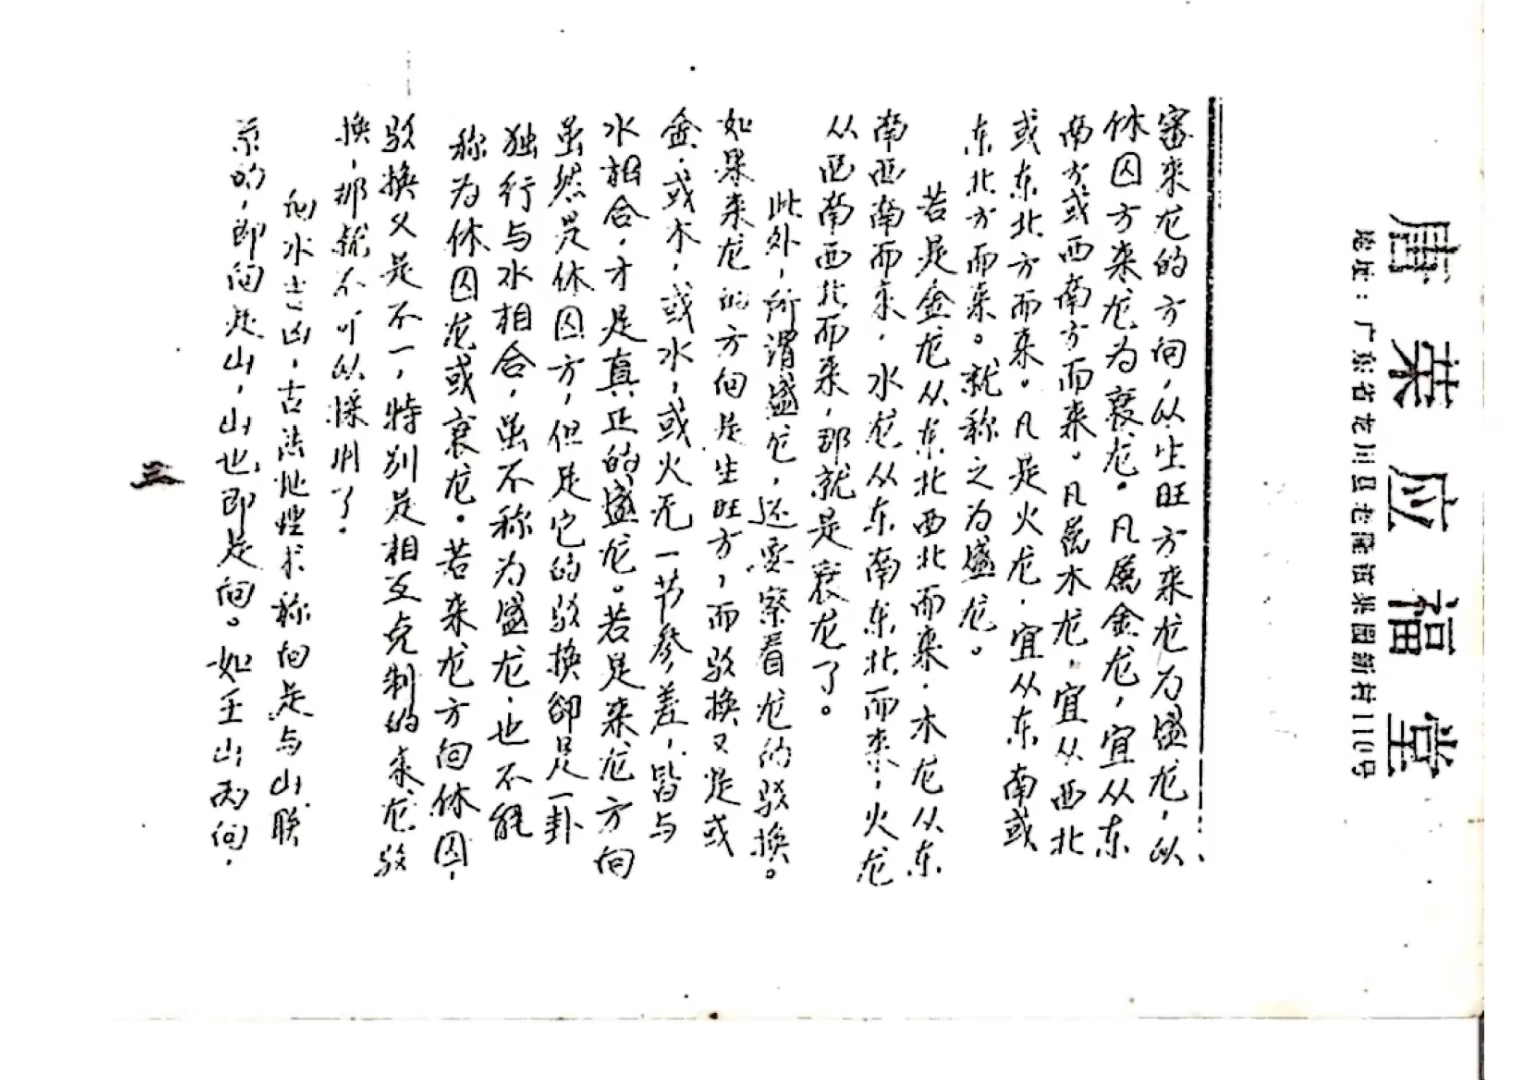 唐荣应福堂
地址：广东省龙川县老隆百果园新村110号
审来龙的方向，以生旺方来龙为盛龙，以
休囚方来龙为衰龙。凡属金龙，宜从东
南方或西南方而来。凡属木龙，宜从西北
或东北方而来。凡是火龙，宜从东南或
东北方而来。就称之为盛龙。
若是金龙从东北西北而来，木龙从东
南西南而来，水龙从东南东北而来，火龙
从西南西北而来，那就是衰龙了。
此外，所谓盛龙，还要察看龙的驳换。
如果来龙的方向是生旺方，而驳换又是或
金，或木，或水，或火无一节参差，皆与
水相合，才是真正的盛龙。若是来龙方向
虽然是休囚方，但是它的驳换卻是一卦
独行与水相合，虽不称为盛龙，也不能
称为休囚龙或衰龙。若来龙方向休囚，
驳换又是不一，特别是相互克制的来龙驳
换，那就不可以择用了。
向水吉凶，古法地理术称向是与山联
系的，即向是山，山也即是向。如壬山丙向，
三